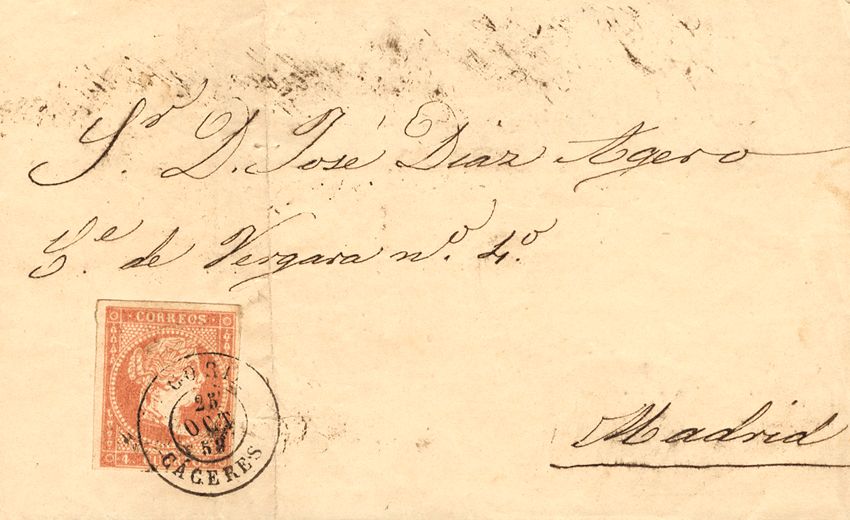 Sr. D. José Diaz Agero
Ce. de Vergara no. 4o.
CORREOS
CORIA
25
OCT
59
CÁCERES
Madrid